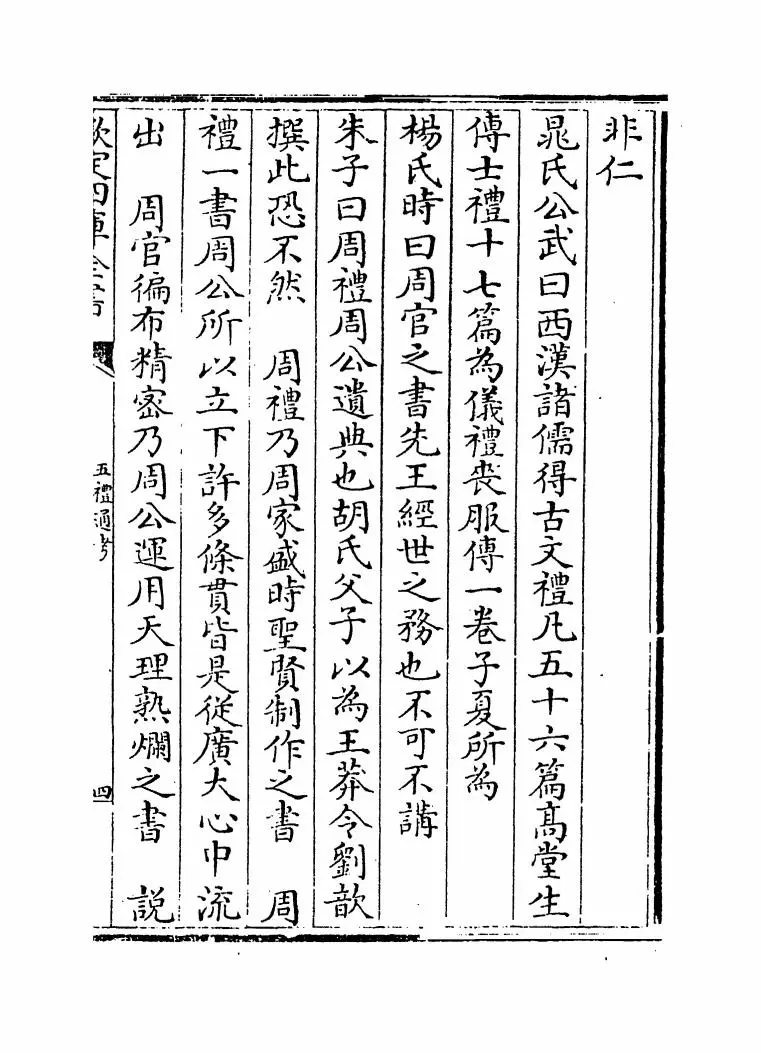 非仁
晁氏公武曰西漢諸儒得古文禮凡五十六篇髙堂生
傳士禮十七篇為儀禮喪服傳一卷子夏所為
楊氏時曰周官之書先王經世之務也不可不講
朱子曰周禮周公遺典也胡氏父子以為王莽令劉歆
撰此恐不然　周禮乃周家盛時聖賢制作之書　周
禮一書周公所以立下許多條貫皆是從廣大心中流
出　周官徧布精宻乃周公運用天理熟爛之書　說
欽定四庫全書
五禮通考
四